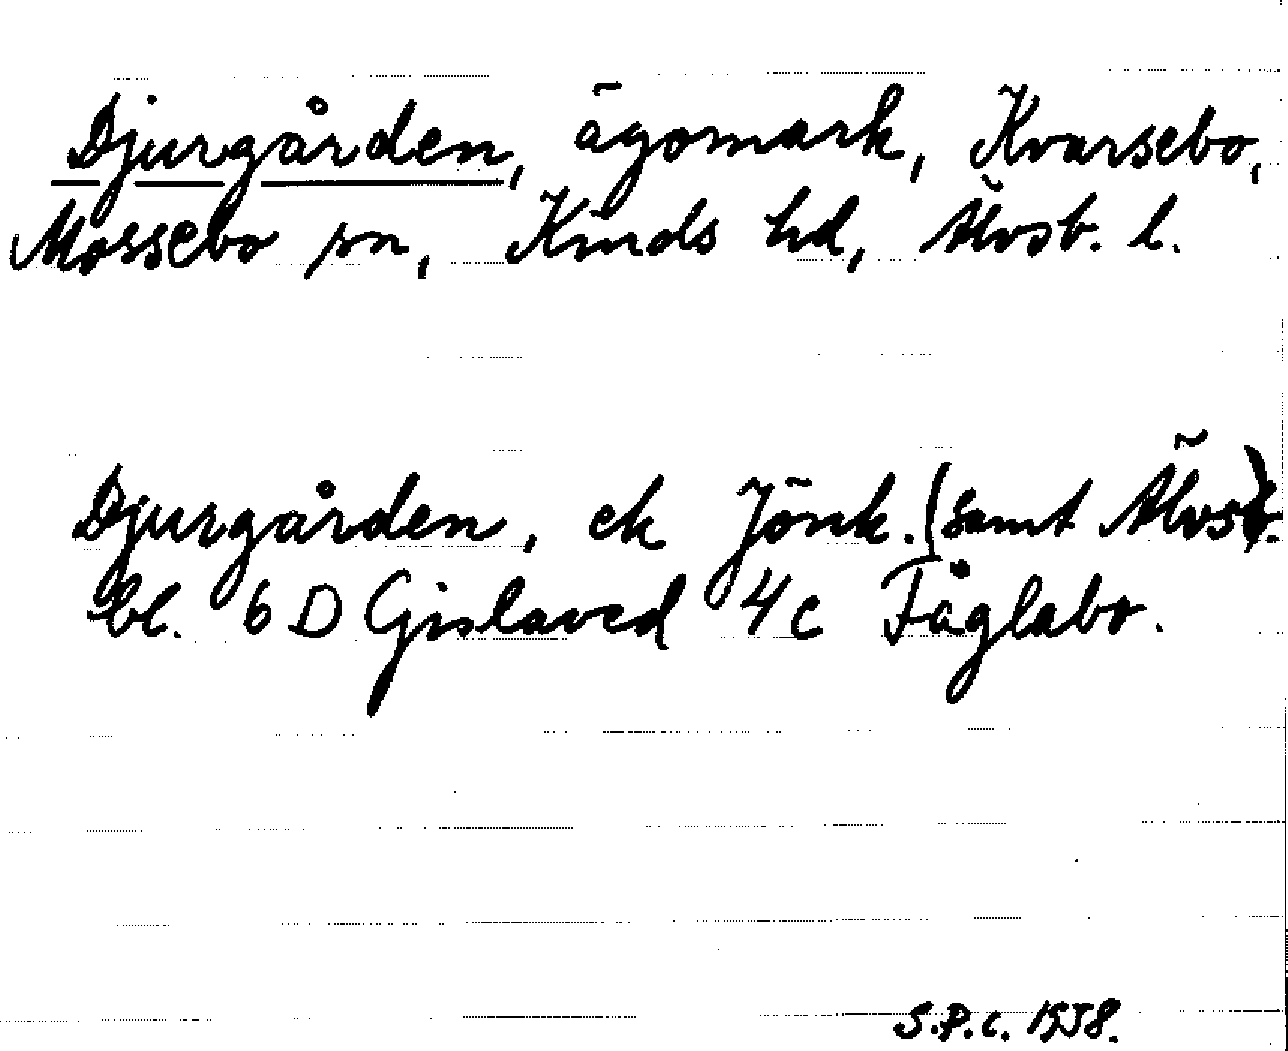 Djurgården, ägomark, Kvarsebo,
Mossebo sn, Kinds hd, Älvsb. l.
Djurgården, ek Jönk. (samt Älvsb).
bl. 6 D Gislaved 4 c Fåglabo.
S.P.C. 1958.